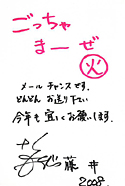 ごっちゃ
まーぜ
火
メールチャンスです。
どんどんお送り下さい
今年も宜しくお願いします。
藤井
2008.